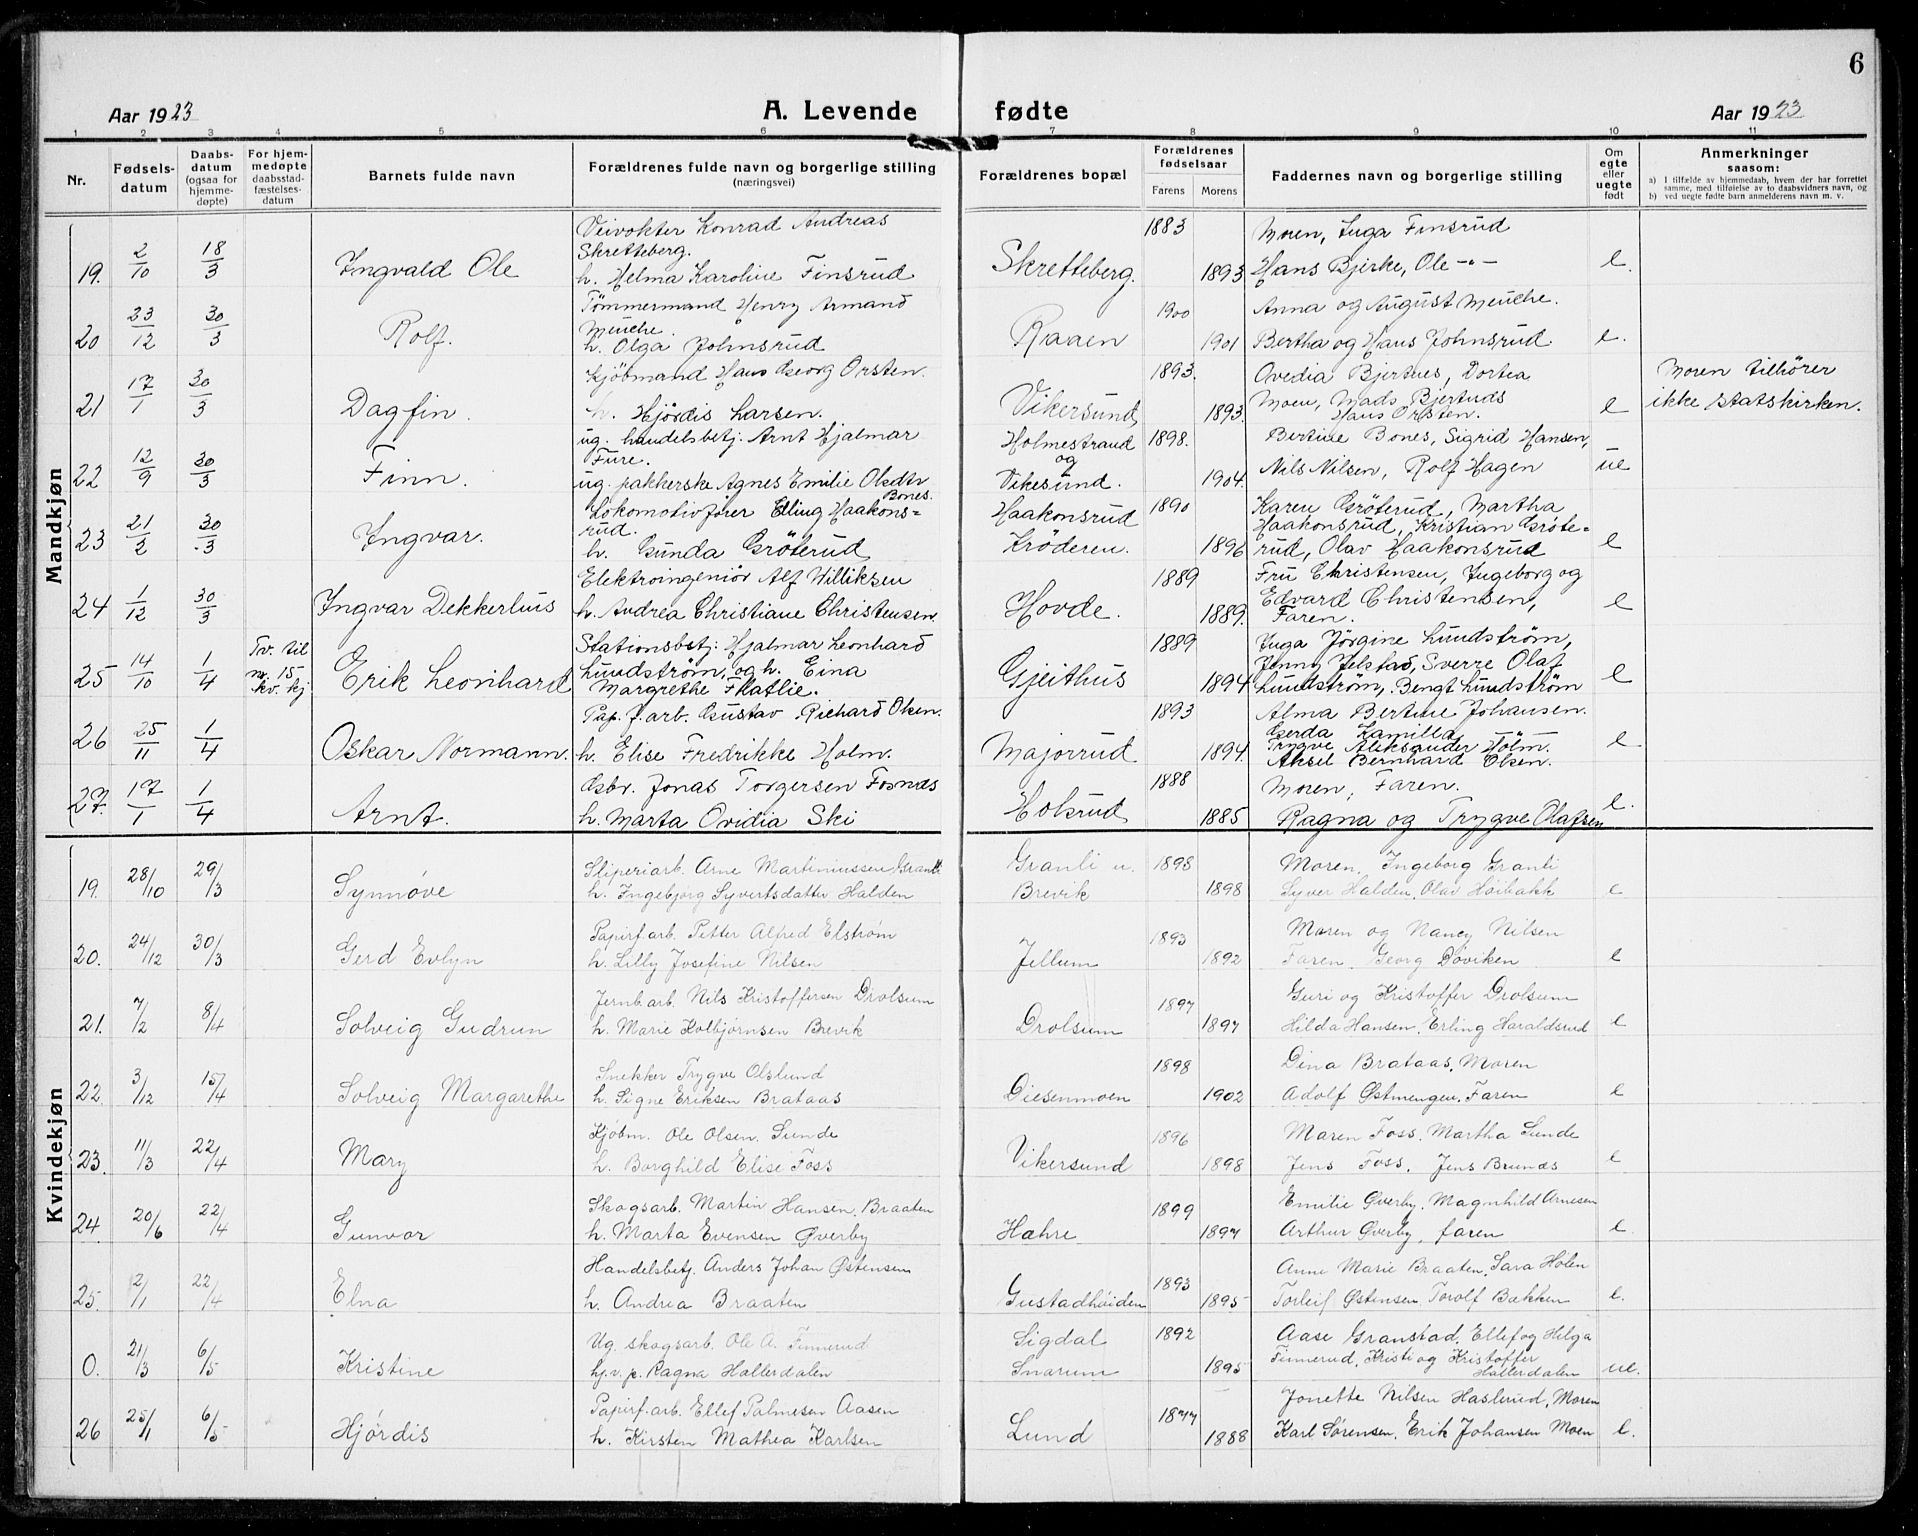 6
Aar 1923
A. Levende
fødte
Aar 1923
1 2 3 4 5 6 7 8 9 10 11
Nr.
Fødsels-
datum
Daabs-
datum
(ogsaa for
hjemme-
døpte)
For hjem-
medøpte
daabsstad-
fæstelses-
datum
Barnets fulde navn
Forældrenes fulde navn og borgerlige stilling
(næringsvei)
Forældrenes bopæl
Forældrenes
fødselsaar
Farens
Morens
Faddernes navn og borgerlige stilling
Om
egte
eller
uegte
født
Anmerkninger
saasom:
a) I tilfælde av hjemmedaab, hvem der har forrettet
samme, med tilføielse av to daabsvidners navn, og
b) ved uegte fødte barn anmelderens navn m. v.
Mandkjøn
Veivokter Konrad Andreas 1883 Moren, Inga Finsrud
19. 2/10 18/3 Ingvald Ole Skretteberg. Skretteberg. Hans Bjerke, Ole -"- e.
h. Helma Karoline Finsrud 1893
Tømmermand Henry Armand 1900 Anna og August Meuche.
20 23/12 30/3 Rolf. Meuche. Raaen
h. Olga Johnsrud 1901 Bertha og Hans Johnsrud e.
Kjöbmand Hans Georg Orsten. 1893. Ovedia Bjertnes, Dortea Moren tilhører
21 17/1 30/3 Dagfin. h. Hjördis Larsen. Vikersund 1893 Moen, Mads Bjertnes e ikke statskirken.
Hans Orsten.
ug. handelsbetj. Arnt Hjalmar Holmestrand 1898. Bertine Bones, Sigrid Hansen,
22 12/9 30/3 Finn. Fure. og
ug. pakkerske Agnes Emilie Olsdtr Vikesund. 1904. Nils Nilsen, Rolf Hagen ue
Bones.
Lokomotivfører Elling Haakons= Haakonsrud 1890 Karen Gröterud, Martha
23 21/2 30/3 Ingvar. rud. Haakonsrud, Kristian Gröte=
h. Gunda Gröterud Kröderen. 1896 rud, Olav Haakonsrud e
Elektroingeniör Alf Williksen 1889 Fru Christensen, Ingeborg og
24 1/12 30/3 Ingvar Dekkerhus h. Andrea Christiane Christensen. Hovde. 1889. Edvard Christensen, e
Faren.
Tv. til Stationsbetj. Hjalmar Leonhard 1889 Inga Jörgine Lundström,
25 14/10 1/4 nr. 15 Erik Leonhard Lundström, og h. Eina Gjeithus Jenny Jelstad, Sverre Olaf
kv. kj Margrethe Flatlie. 1894 Lundström, Bengt Lundström e
Pap. f. arb. Gustav Richard Olsen. 1893 Alma Bertine Johansen.
26 25/11 1/4 Oskar Normann. h. Elise Fredrikke Holm. Majorrud 1894. Gerda Kamilla -"-
Trygve Aleksander Holm. e
Aksel Bernhard Olsen.
Gsbr. Jonas Torgersen Fosnæs 1888 Moren, Faren.
27. 17/1 1/4 Arnt. h. Marta Ovidia Ski Holsrud 1885 Ragna og Trygve Olafsen e.
Kvindekjøn
Sliperiarb. Arne Martiniussen Granli Granli u. 1898 Moren, Ingeborg Granli
19. 28/10 29/3 Synnøve h. Ingebjørg Syvertsdatter Halden Brevik 1898 Syver Halden, Olav Høibakk e
Papirf. arb. Petter Alfred Elstrøm 1893 Moren og Nancy Nilsen
20. 24/12 30/3 Gerd Evlyn h. Lilly Josefine Nilsen Jellum 1892 Faren, Georg Døviken e
Jernb. arb. Nils Kristoffersen Drolsum 1897 Guri og Kristoffer Drolsum
21. 7/2 8/4 Solveig Gudrun h. Marie Kolbjørnsen Brevik Drolsum 1897 Hilda Hansen, Erling Haraldsrud e
Snekker Trygve Olslund 1898 Dina Brataas, Moren
22. 3/12 15/4 Solveig Margarethe h. Signe Eriksen Brataas Diesenmoen 1902 Adolf Østmengen, Faren e
Kjøbm. Ole Olsen Sunde 1896 Maren Foss, Martha Sunde
23. 11/3 22/4 Mary h. Borghild Elise Foss Vikersund 1898 Jens Foss, Jens Brunæs e
Skogsarb. Martin Hansen Braaten 1899 Emilie Øverby, Magnhild Arnesen
24. 20/6 22/4 Gunvor h. Marta Evensen Øverby Hæhre 1897 Arthur Øverby, faren e
Handelsbetj. Anders Johan Østensen 1893 Anne Marie Braaten, Sara Holen
25. 12/1 22/4 Elna h. Andrea Braaten Gustadhøiden 1895 Torleif Østensen, Torolf Bakken e.
Ug. skogsarb. Ole A. Finnerud Sigdal 1892 Aase Granstad, Ellef og Hilga
0. 21/3 6/5 Kristine hj.v. p. Ragna Hallerdalen Snarum 1895 Finnerud, Kristi og Kristoffer
Hallerdalen ue.
Papirf. arb. Ellef Palmesen Aasen 1877 Jonette Nilsen Haslerud, Moren
26 25/1 6/5 Hjørdis h. Kirsten Mathea Karlsen Lund 1888 Karl Sørensen, Erik Johansen Moen e.